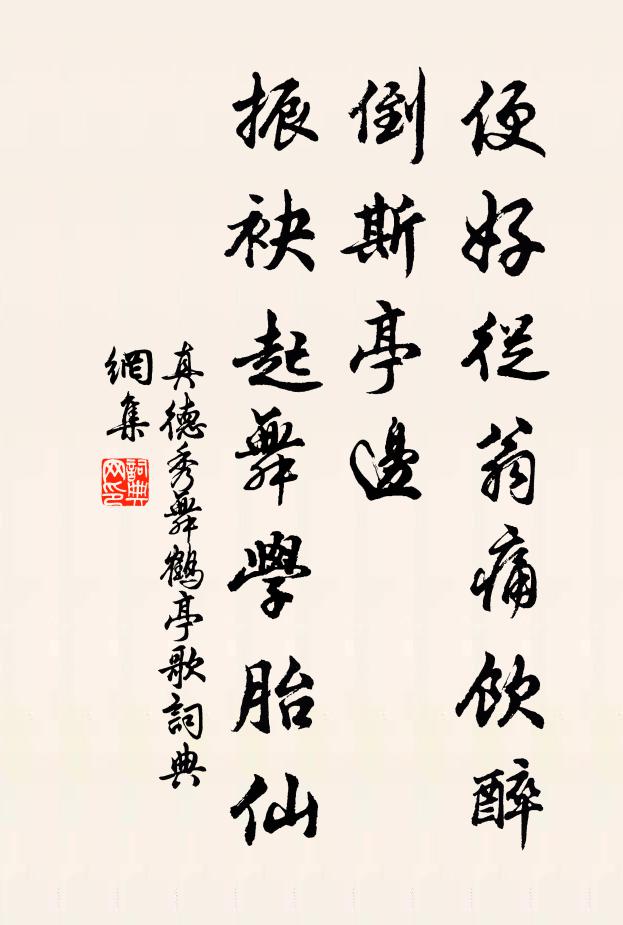 便好從翁痛飲醉
倒斯亭邊
振袂起舞學胎仙
真德秀舞鶴亭歌詞典
網集
詞典网印